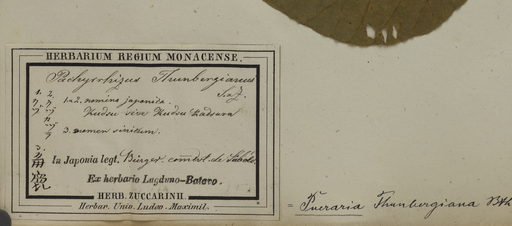 HERBARIUM REGIUM MONACENSE.
Pachyrrhizus Thunbergianus
S. et Z.
1 et 2. nomina japonica.
Kudsu sive Kudsu Kadsura
3. nomen sinicum.
In Japonia legt. Bürger. comt. de Siebold
Ex herbario Lugduno-Batavo.
HERB. ZUCCARINII.
Herbar. Univ. Ludov. Maximil.
= Pueraria Thunbergiana Bth